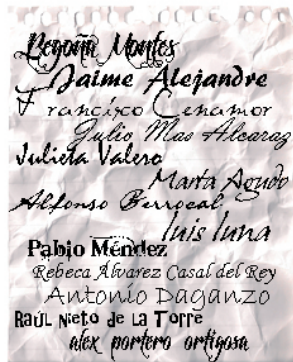 Begoña Montes
Jaime Alejandre
Francisco Cenamor
Julio Mas Alcaraz
Julieta Valero
Marta Agudo
Alfonso Berrocal
luis luna
Pablo Méndez
Rebeca Álvarez Casal del Rey
Antonio Daganzo
Raúl Nieto de la Torre
alex portero ortigosa